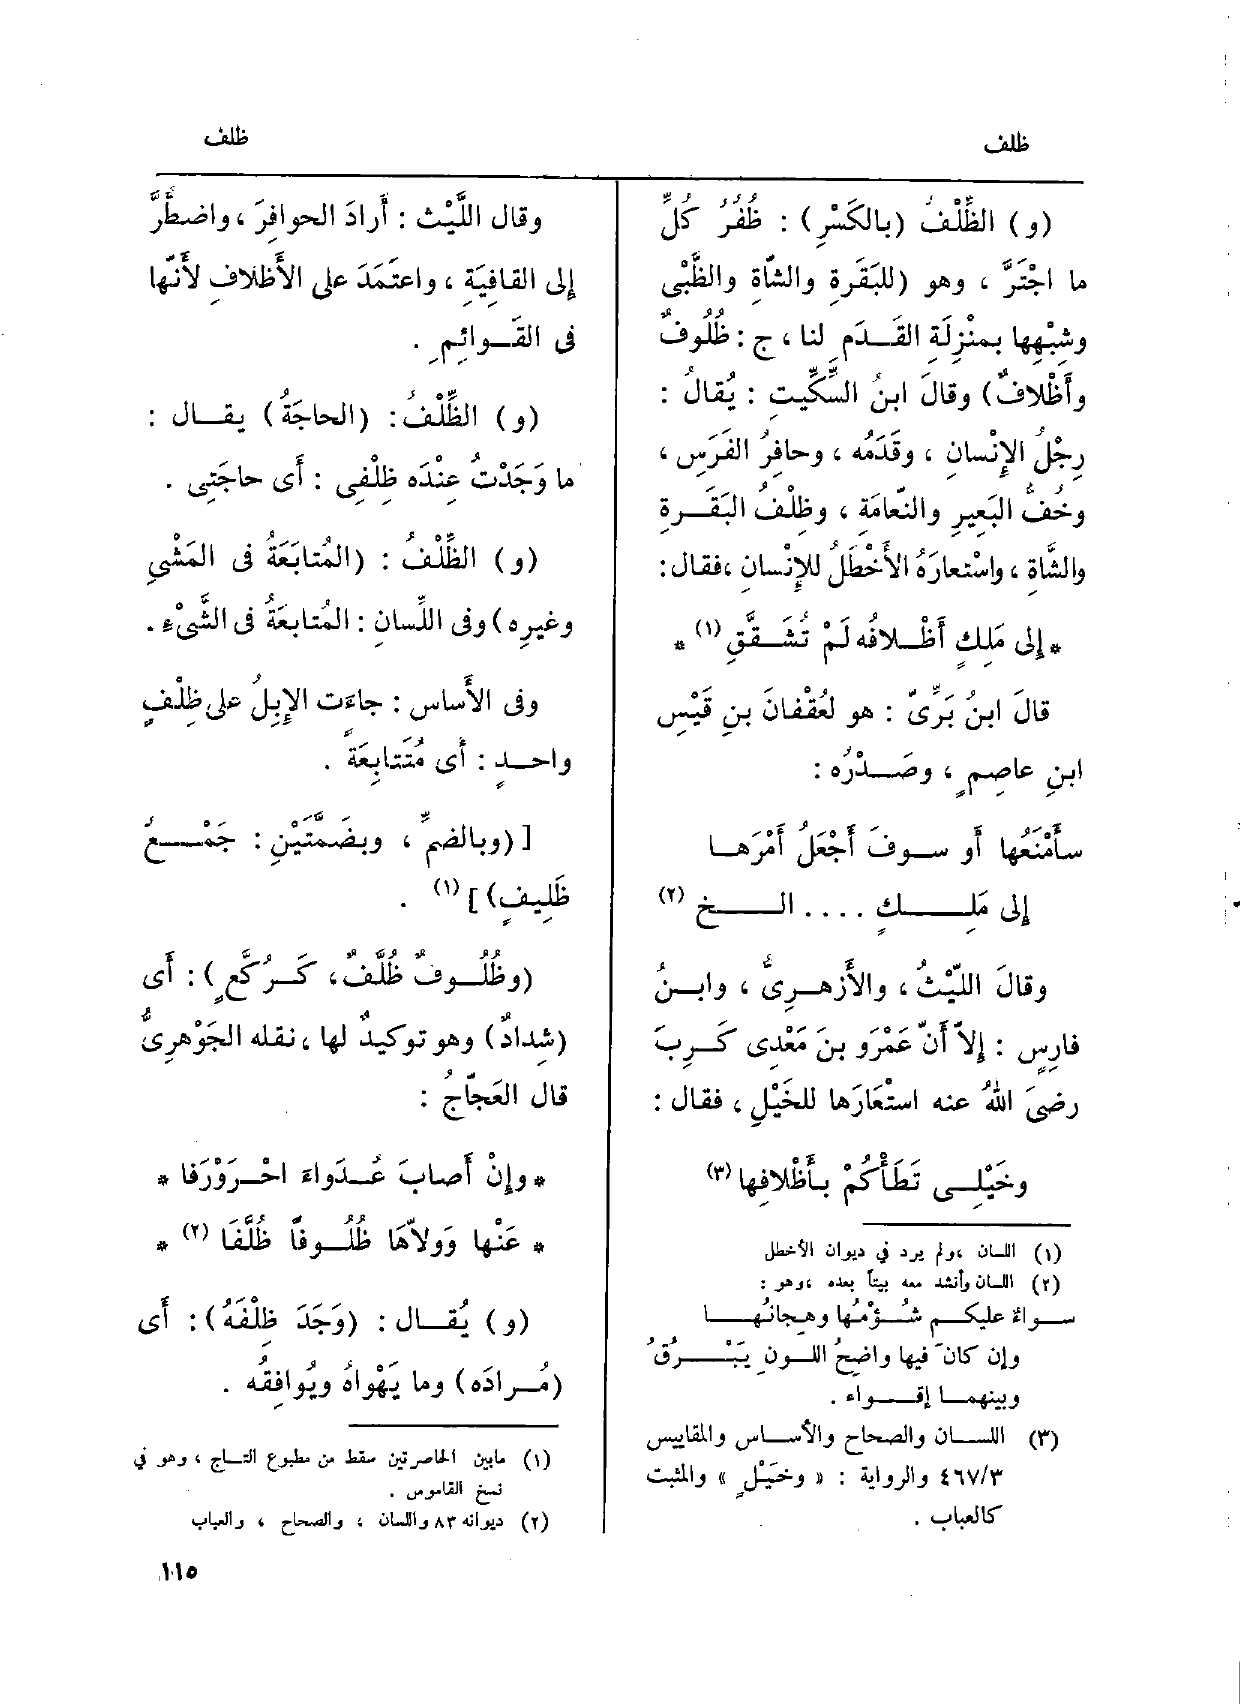 ظلف
ظلف
(و) الظِّلْفُ (بالكَسْرِ) : ظُفُرُ كُلِّ
ما اجْتَرَّ ، وهو (للبَقَرةِ والشّاةِ والظَّبْىِ
وشِبْهِها بمنْزِلَةِ القَـدَمِ لنا ، ج : ظُلُوفٌ
وأَظْلافٌ) وقالَ ابنُ السِّكِّيتِ : يُقالُ :
رِجْلُ الإِنْسانِ ، وقَدَمُه ، وحافِرُ الفَرَسِ ،
وخُفُّ البَعِيرِ والنّعامَةِ ، وظِلْفُ البَقَـرةِ
والشَّاةِ ، واسْتعارَهُ الأَخْطَلُ للإِنْسانِ ،فقال:
* إِلى مَلِكٍ أَظْـلافُه لَمْ تُشَـقَّقِ (١) *
قالَ ابنُ بَرِّىّ : هو لعُقْفانَ بنِ قَيْسِ
ابنِ عاصِمٍ ، وصَـدْرُه :
سأَمْنَعُها أَو سـوفَ أَجْعَلُ أَمْرَهـا
إِلى مَلِـكٍ .... الـخ (٢)
وقالَ اللّيْثُ ، والأَزْهـرِىُّ ، وابـنُ
فارِسٍ : إِلاّ أَنّ عَمْرَو بنَ مَعْدِى كَـرِبَ
رضىَ اللهُ عنه استْعَارَها للخَيْلِ ، فقال :
وخَيْلِـى تَطَأْكُمْ بـأَظْلافِها (٣)
(١) اللسان ،ولم يرد في ديوان الأخطل
(٢) اللسان وأنشد معه بيتاً بعده ،وهو :
سـواءٌ عليكـم شُـؤْمُها وهِجانُهـا
وإن كان فيها واضِحُ اللـونِ يَبْـرُقُ
وبينهمـا إقـواء .
(٣) اللسـان والصحاح والأساس والمقاييس
٤٦٧/٣ والرواية : « وخَيْلٍ » والمثبت
كالعباب .
وقال اللَّيْث : أَرادَ الحوافِرَ ، واضطُرَّ
إِلى القافِيَةِ ، واعتَمَدَ على الأَظْلافِ لأَنّها
فى القَـوائِمِ .
(و) الظِّلْفُ: (الحاجَةُ) يقـال :
ما وَجَدْتُ عِنْدَه ظِلْفِى : أَى حاجَتِى .
(و) الظِّلْفُ : (المُتابَعَةُ فى المَشْىِ
وغيرِه) وفى اللِّسانِ : المُتابَعَةُ فى الشَّىْءِ .
وفى الأَساس : جاءَت الإِبِلُ على ظِلْفٍ
واحـدٍ : أَى مُتَتابِعَةً .
[ (وبالضمِّ ، وبضَمَّتَيْنِ : جَمْـعُ
ظَلِيفٍ) ] (١) .
(وظُلُـوفٌ ظُلَّفٌ ، كَـرُكَّعٍ ) : أَى
(شِدادٌ) وهو توكيدٌ لها ، نقله الجَوْهرِىُّ
قال العَجّاجُ :
* وإِنْ أَصابَ عُـدَواءَ احْـرَوْرَفا *
* عَنْها وَوَلاّهَا ظُلُـوفاً ظُلَّفَا (٢) *
(و) يُقـال : (وَجَدَ ظِلْفَهُ) : أَى
(مُـرادَه) وما يَهْواهُ ويُوافِقُه .
(١) مابين الحاصرتين سقط من مطبوع التـاج ، وهو في
نسخ القاموس .
(٢) ديوانه ٨٣ واللسان ، والصحاح ، والعباب
١١٥